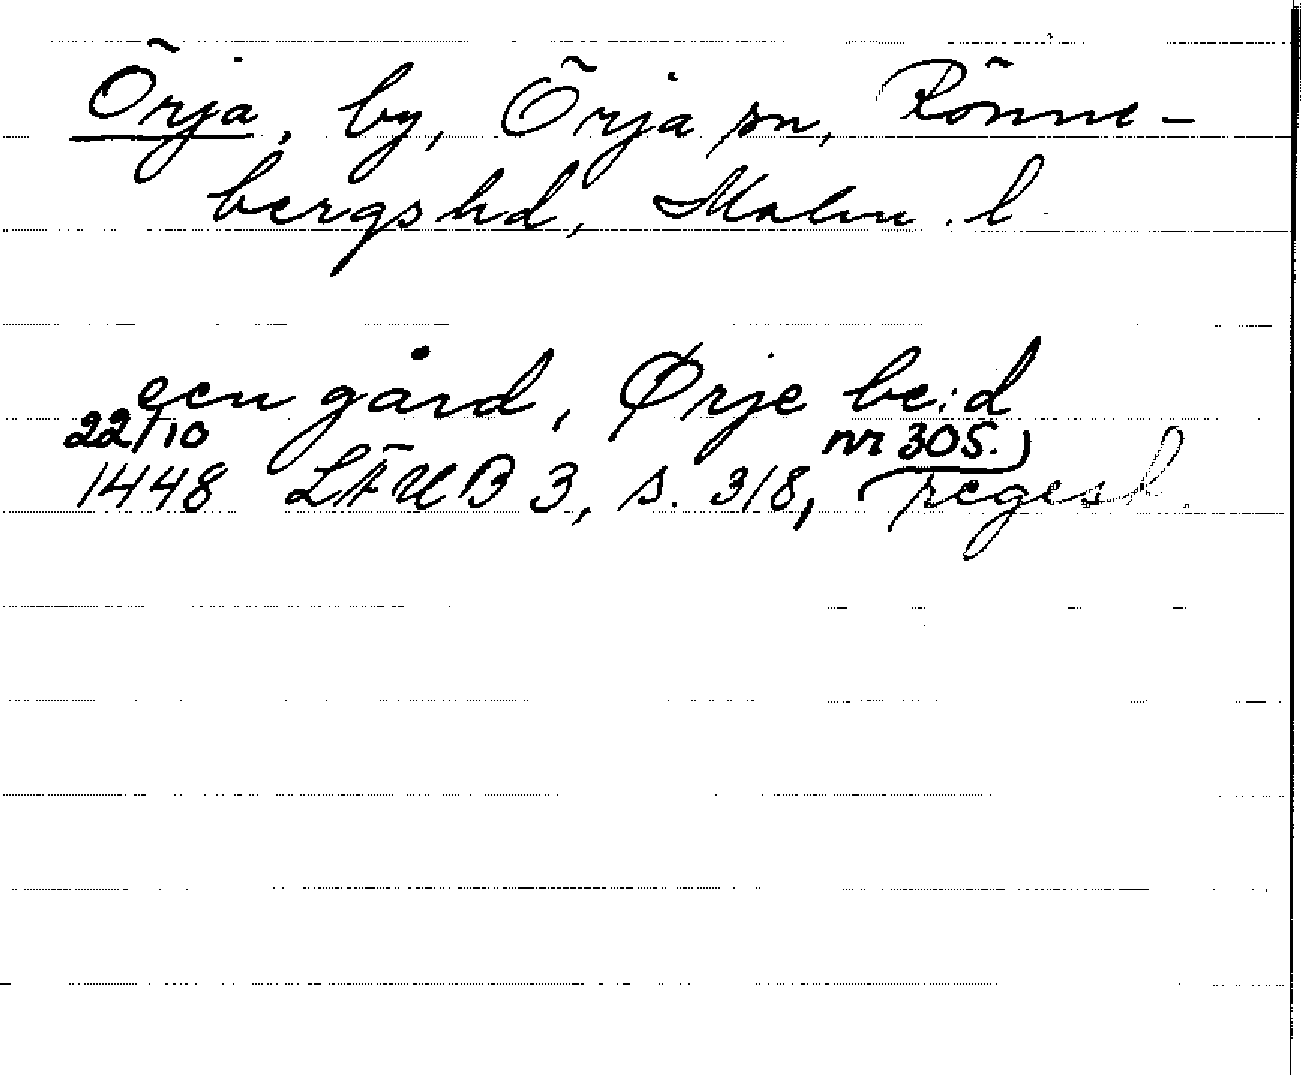 Örja, by, Örja sn, Rönne-
bergs hd, Malm. l.
een gård, Ørje be:d
22/10 nr 305.
1448 LÄUB 3, s. 318, regest.